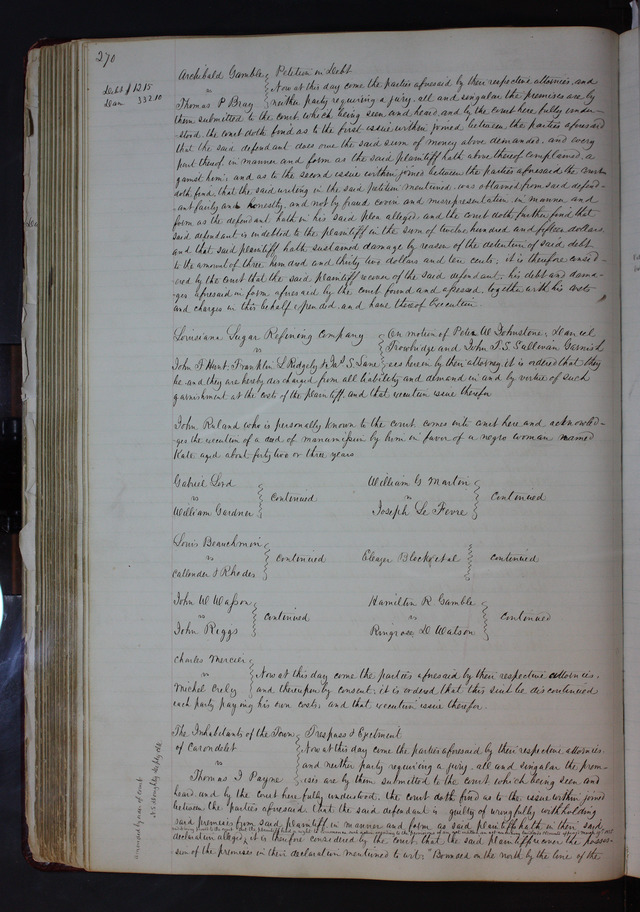 270
Debt $1215
Dam 332.10
Archibald Gamble } Petition in Debt
vs } Now at this day come the parties aforesaid by their respective attornies, and
Thomas P Bray } neither party requiring a jury, all and singular the premises are by
them submitted to the court which being seen and heard, and by the court here fully under-
stood, the court doth find as to the first issue within joined between the parties aforesaid
that the said defendant does owe the said sum of money above demanded, and every
part thereof in manner and form as the said plaintiff hath above thereof complained a
gainst him; and as to the second issue within joined between the parties aforesaid the court
doth find, that the said writing in the said petition mentioned, was obtained from said defend-
ant fairly and honestly, and not by fraud covin and misrepresentation in manner and
form as the defendant hath in his said plea alleged, and the court doth further find that
said defendant is indebted to the plaintiff in the sum of twelve hundred and fifteen dollars
and that said plaintiff hath sustained damage by reason of the detention of said debt
to the amount of three hundred and thirty two dollars and ten cents; it is therefore consid-
ered by the court that the said plaintiff recover of the said defendant, his debt and dama-
ges aforesaid in form aforesaid by the court found and assessed, together with his costs
and charges in this behalf expended, and have thereof Execution
Louisiana Sugar Refining Company } On motion of Peter W Johnstone, Daniel
vs } Trowbridge and John T. S. Sullivan Garnish
John F Hunt, Franklin L Ridgely & Jas. S. Lane } ees herein by their attorney it is ordered that they
be and they are hereby discharged from all liability and demand in and by virtue of such
garnishment at the costs of the plaintiff, and that execution issue therefor
John Ruland who is personally known to the court, comes into court here and acknowled-
ges the execution of a deed of manumission by him in favor of a negro woman named
Kate aged about forty two or three years
Gabriel Lord
vs } Continued
William Gardner
William G. Martin
vs } Continued
Joseph Le Fevre
Louis Beauchmin
vs } Continued
Callender & Rhodes
Eleazer Block et al } Continued
John W Wasson
vs } Continued
John Riggs
Hamilton R Gamble
vs } Continued
Ringrose D Watson
Charles Mercier
vs } Now at this day come the parties aforesaid by their respective attornies,
Michel Crely } and thereupon by consent, it is ordered that this suit be discontinued
each party paying his own costs; and that execution issue therefor
The Inhabitants of the Town } Trespass & Ejectment
of Carondelet } Now at this day come the parties aforesaid by their respective attornies
vs } and neither party requiring a jury, all and singular the prem-
Thomas J Payne } ises are by them submitted to the court which being seen, and
heard and by the court here fully understood, the court doth find as to the issue within joined
between the parties aforesaid that the said defendant is guilty of wrongfully withholding
said premises from said plaintiff in manner and form as said plaintiff hath in their said
declaration alleged, it is therefore considered by the court that the said plaintiff recover the posses-
sion of the premises in their declaration mentioned to wit; "Bounded on the north by the line of the